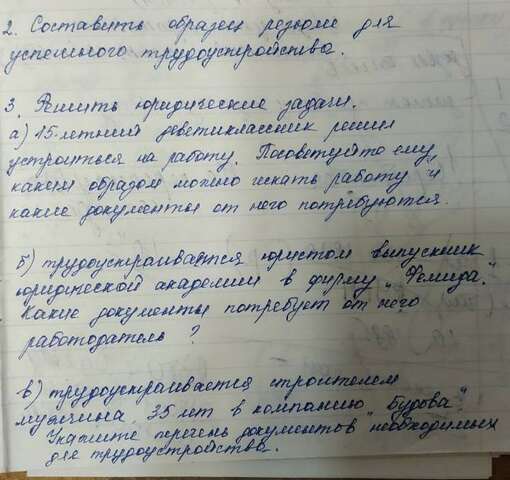 2. Составить образец резюме для
успешного трудоустройства.
3. Решить юридические задачи.
а) 15-летний девятиклассник решил
устроиться на работу. Посоветуйте ему,
каким образом можно искать работу и
какие документы от него потребуются.
б) трудоустраивается юристом выпускник
юридической академии в фирму „Фемида".
Какие документы потребует от него
работодатель ?
в) трудоустраивается строителем
мужчина 35 лет в компанию „Будова".
Укажите перечень документов необходимых
для трудоустройства.